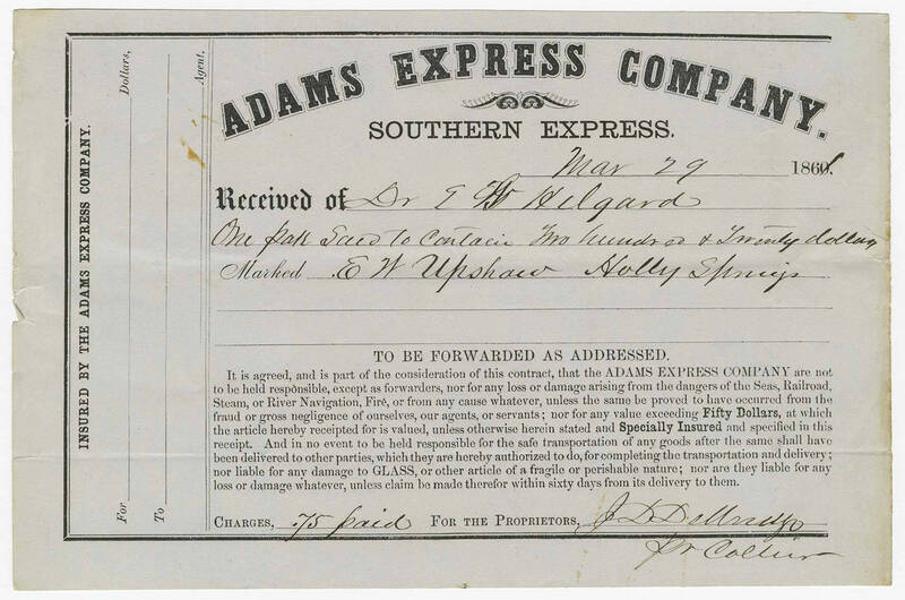 ADAMS EXPRESS COMPANY.
SOUTHERN EXPRESS.
Mar 29 1861.
Received of Dr E W Hilgard
One pak Said to Contain Two hundred & Twenty dollars
Marked E W Upshaw Holly Springs
TO BE FORWARDED AS ADDRESSED.
It is agreed, and is part of the consideration of this contract, that the ADAMS EXPRESS COMPANY are not
to be held responsible, except as forwarders, nor for any loss or damage arising from the dangers of the Seas, Railroad,
Steam, or River Navigation, Fire, or from any cause whatever, unless the same be proved to have occurred from the
fraud or gross negligence of ourselves, our agents, or servants; nor for any value exceeding Fifty Dollars, at which
the article hereby receipted for is valued, unless otherwise herein stated and Specially Insured and specified in this
receipt. And in no event to be held responsible for the safe transportation of any goods after the same shall have
been delivered to other parties, which they are hereby authorized to do, for completing the transportation and delivery;
nor liable for any damage to GLASS, or other article of a fragile or perishable nature; nor are they liable for any
loss or damage whatever, unless claim be made therefor within sixty days from its delivery to them.
CHARGES, 75 paid FOR THE PROPRIETORS, J D
pr Collier
INSURED BY THE ADAMS EXPRESS COMPANY.
For Dollars,
To Agent.